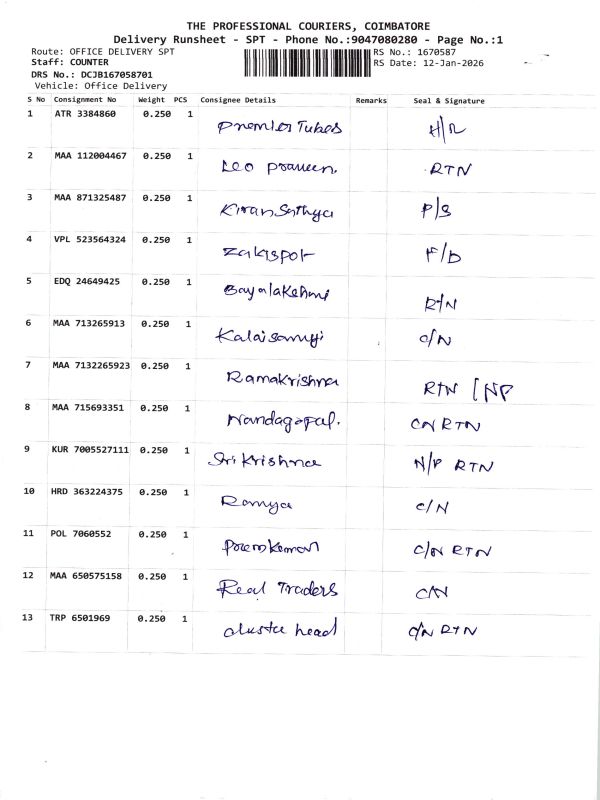 THE PROFESSIONAL COURIERS, COIMBATORE
Delivery Runsheet - SPT - Phone No.:9047080280 - Page No.:1
Route: OFFICE DELIVERY SPT RS No.: 1670587
Staff: COUNTER RS Date: 12-Jan-2026
DRS No.: DCJB167058701
Vehicle: Office Delivery
S No Consignment No Weight PCS Consignee Details Remarks Seal & Signature
1 ATR 3384860 0.250 1 Premier Tubes H/R
2 MAA 112004467 0.250 1 Leo Praveen. RTN
3 MAA 871325487 0.250 1 Kiran Sathya P/S
4 VPL 523564324 0.250 1 F/D
5 EDQ 24649425 0.250 1 RTN
6 MAA 713265913 0.250 1 C/N
7 MAA 7132265923 0.250 1 Ramakrishna RTN [NP
8 MAA 715693351 0.250 1 Nandagopal. CN RTN
9 KUR 7005527111 0.250 1 Sri Krishna N/P RTN
10 HRD 363224375 0.250 1 Ramya C/N
11 POL 7060552 0.250 1 C/N RTN
12 MAA 650575158 0.250 1 Real Traders C/N
13 TRP 6501969 0.250 1 head C/N RTN